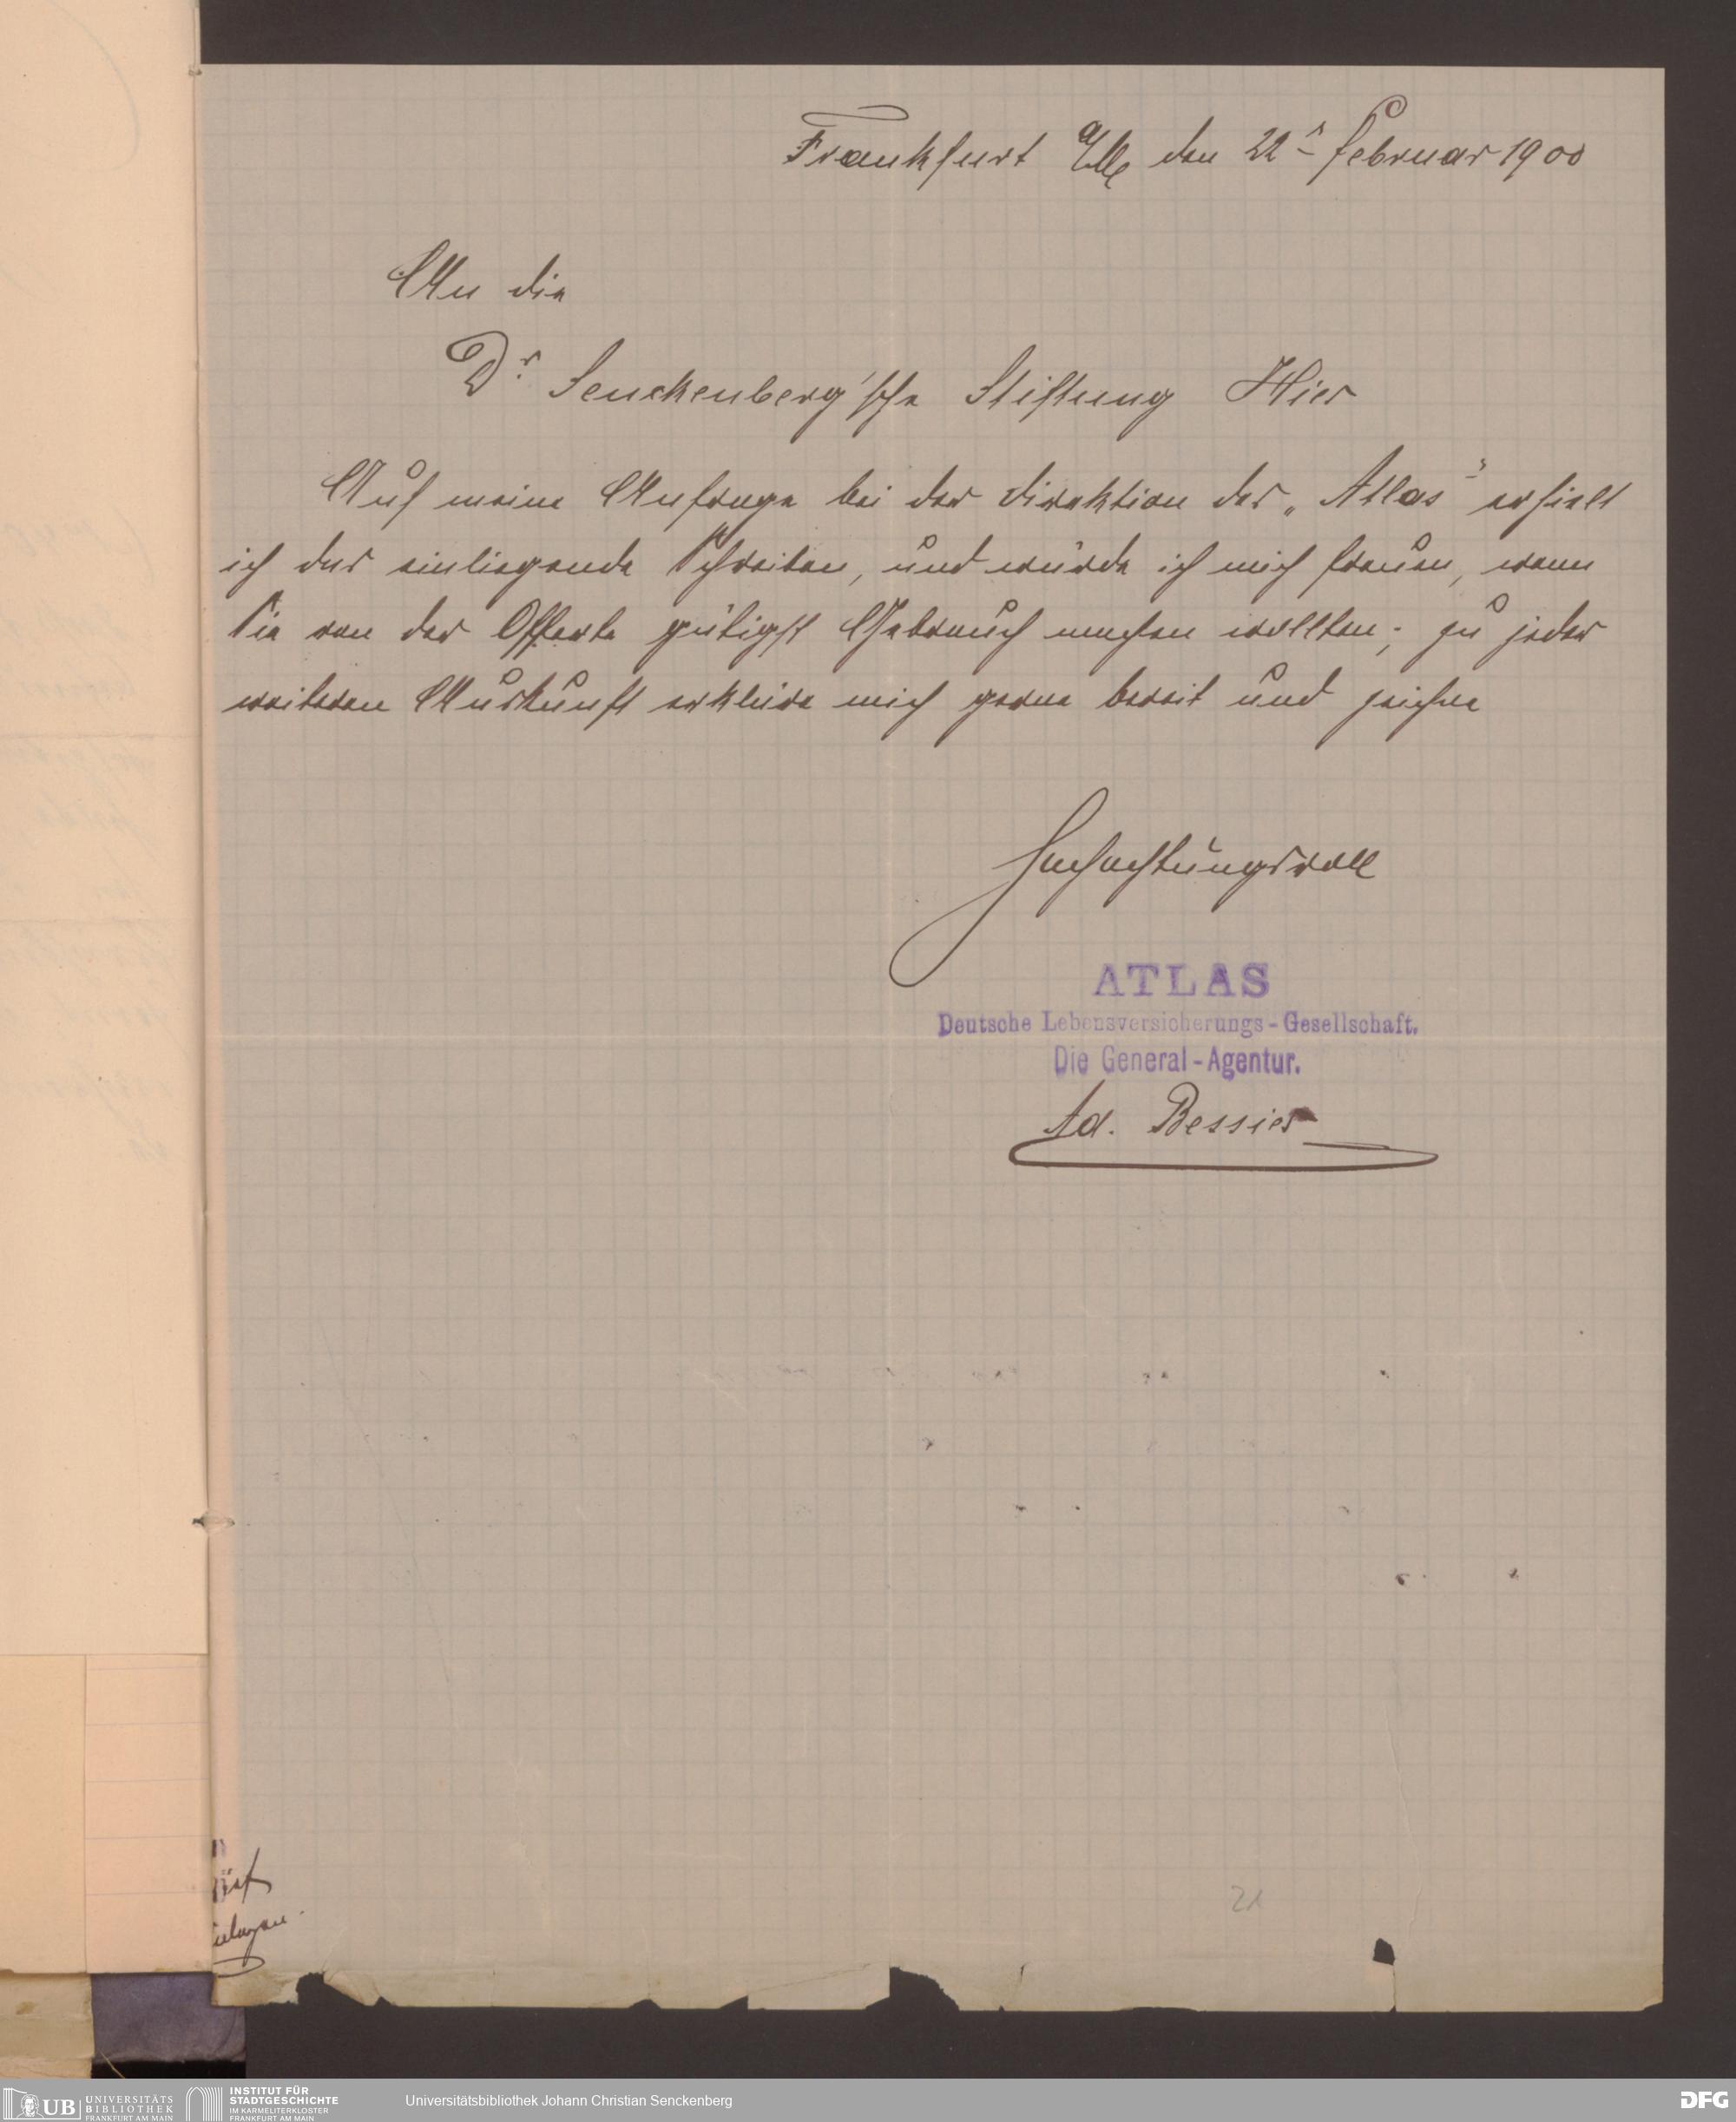 Frankfurt a/M den 22ⁿ Februar 1900
An die
Dr. Senckenberg'sche Stiftung Hier
Auf meine Anfrage bei der Direktion des „Atlas" erhielt
ich das einliegende Schreiben, und würde ich mich freuen, wenn
Sie von der Offerte gütigst Gebrauch machen wollten; zu jeder
weiteren Auskunft erkläre mich gerne bereit und zeichne
Hochachtungsvoll
ATLAS
Deutsche Lebensversicherungs-Gesellschaft.
Die General-Agentur.
Ad. Bessier
21
UB UNIVERSITÄTS
BIBLIOTHEK
FRANKFURT AM MAIN
INSTITUT FÜR
STADTGESCHICHTE
IM KARMELITERKLOSTER
FRANKFURT AM MAIN
Universitätsbibliothek Johann Christian Senckenberg
DFG